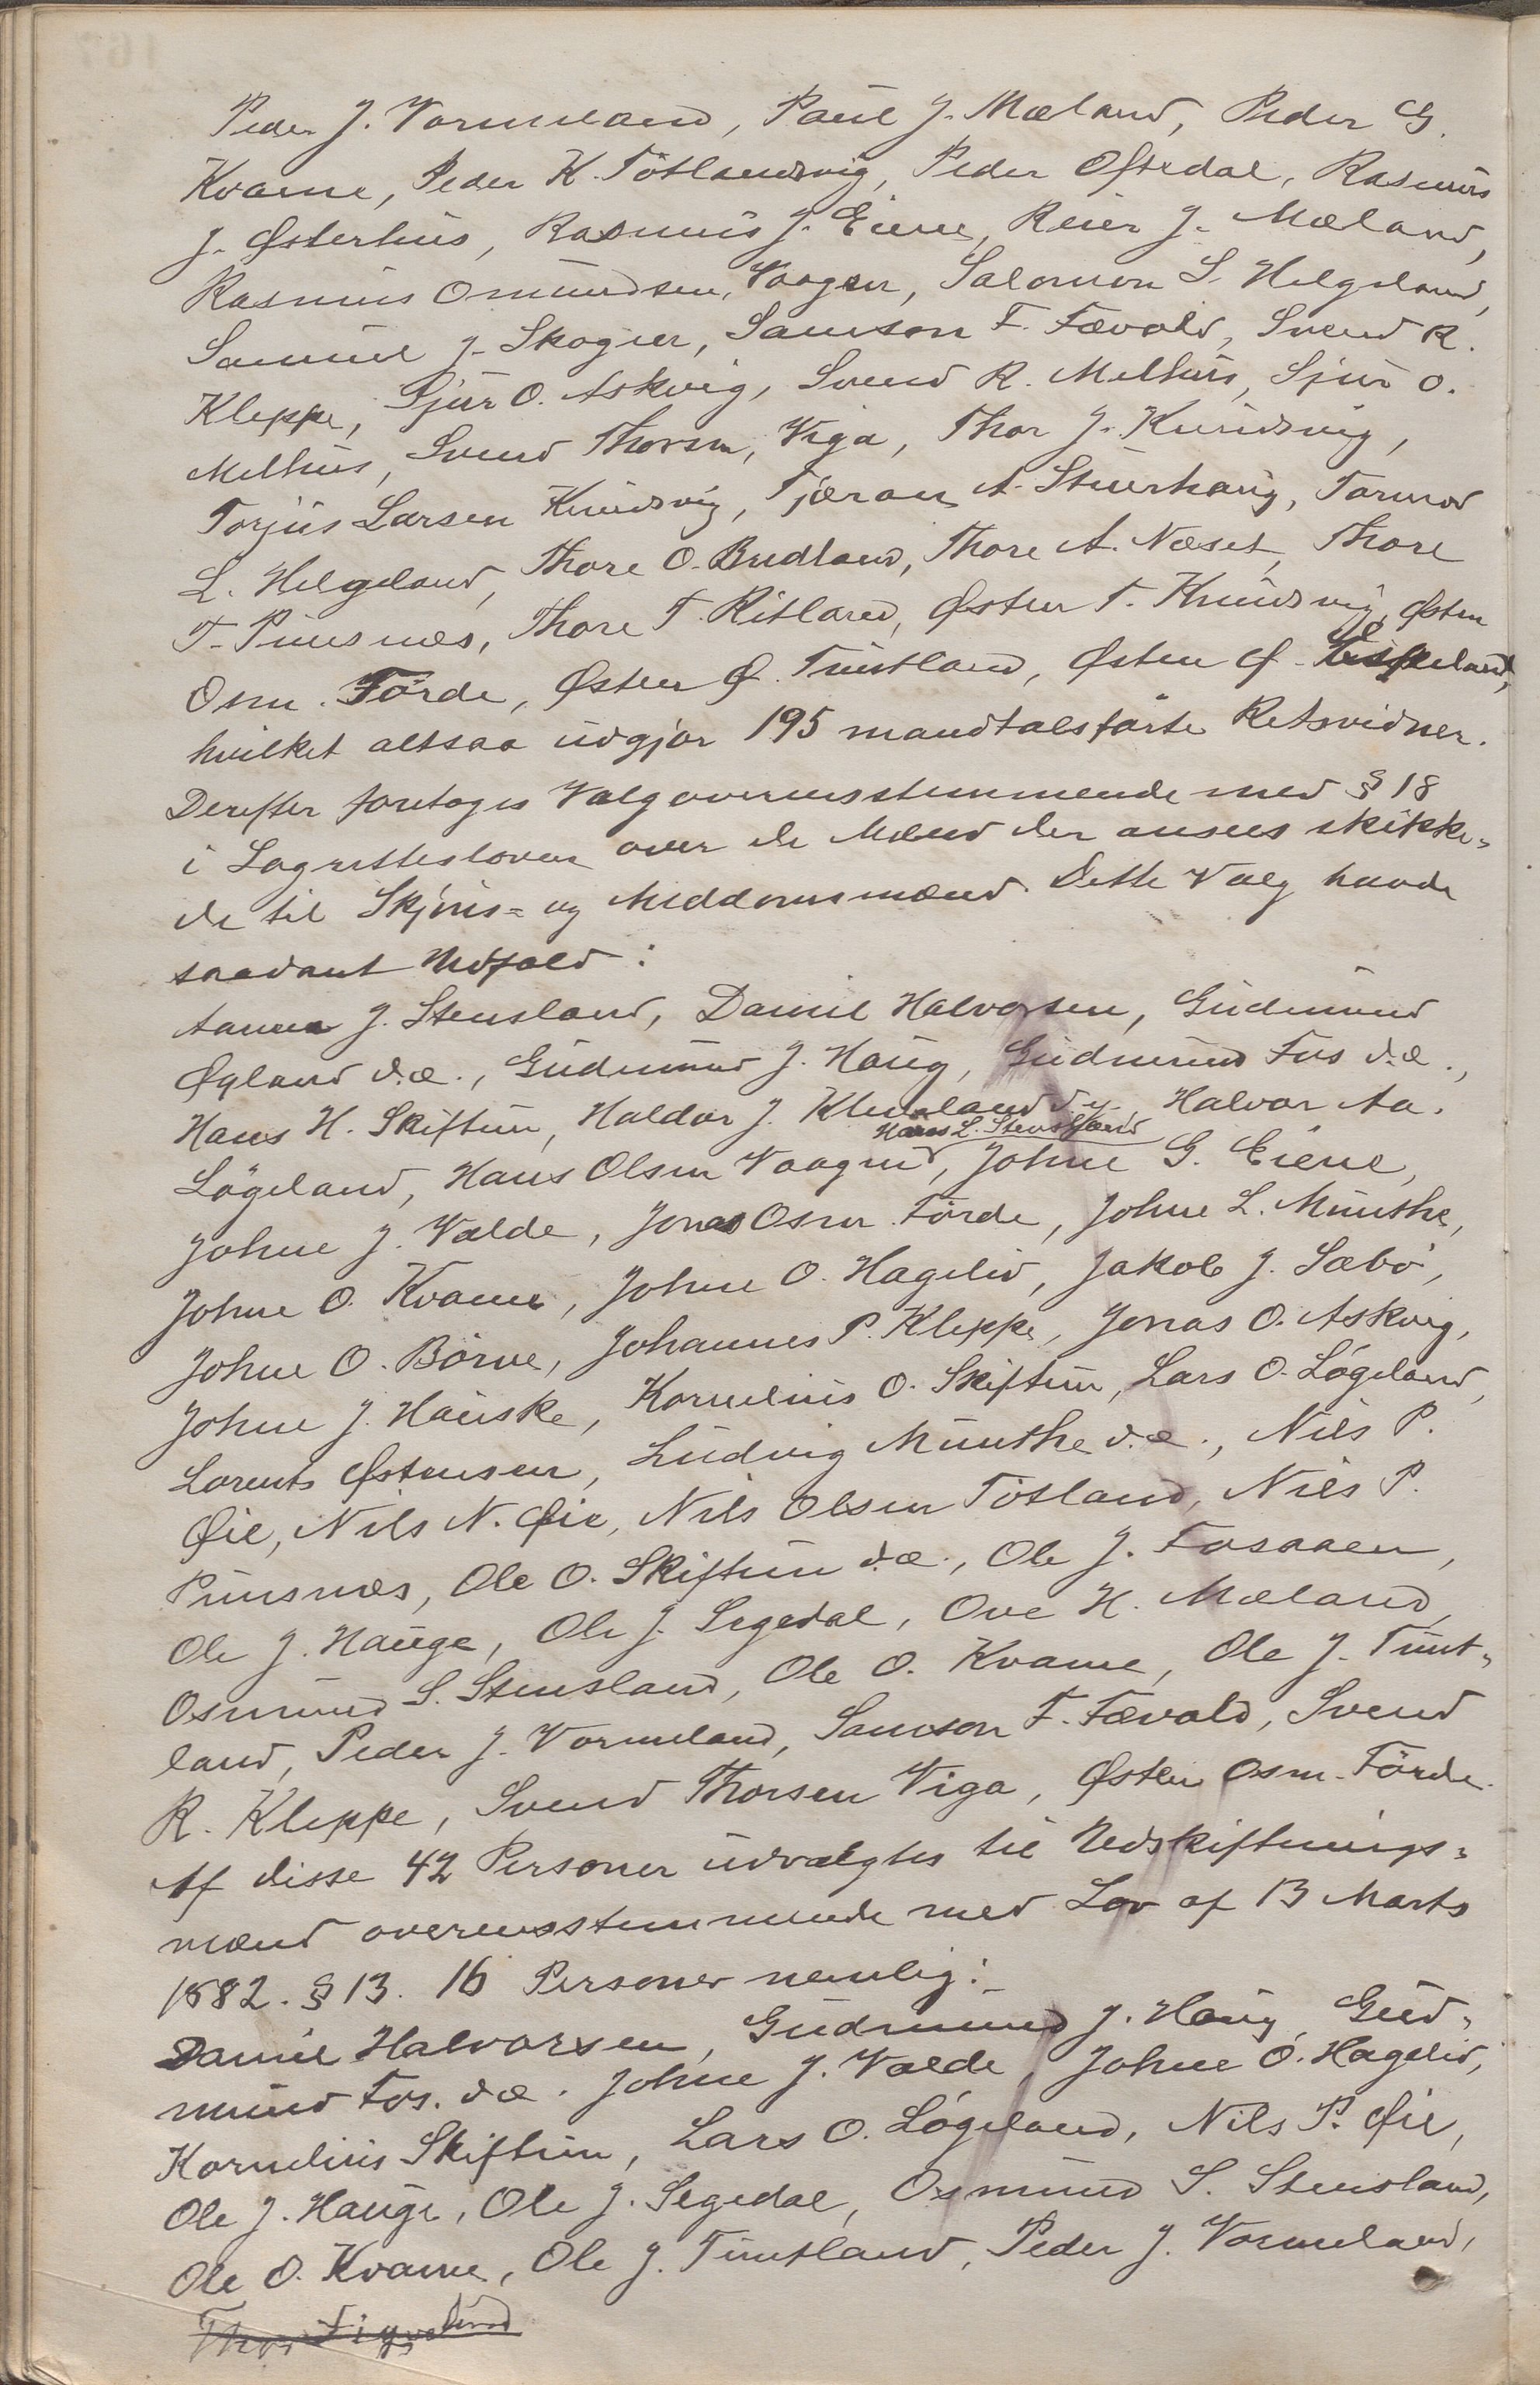 Peder J. Vormeland, Paul J. Mæland, Peder G.
Kvame, Peder K. Tötlandsvig, Peder Oftedal, Rasmus
J. Østerhus, Rasmus J. Eiene, Reier J. Mæland,
Rasmus Omundsen, Vaagen, Salomon S. Helgeland,
Samuel J. Skogen, Samson F. Fævold, Svend R.
Kleppe, Sjur O. Askvig, Svend R. Melhus, Sjur O.
Melhus, Svend Thorsen, Viga, Thor J. Knudsvig,
Torjus Larsen Knudsvig, Tjæran A. Stuerhaug, Tormod
L. Helgeland, Thore O. Bredland, Thore A. Næset, Thore
T. Punsnes, Thore T. Ritland, Østen T. Knudsvig, Østen
Osm. Förde, Østen Ø. Tuntland, Østen Ø.
hvilket altsaa udgjør 195 mandtalsførte Retsvidner.
Derefter foretoges Valg overensstemmende med § 18
i Lagrettesloven over de Mænd der ansees skikke-
de til Skjöns- og Meddomsmænd. Dette Valg havde
saadant Udfald:
Aanen J. Stensland, Daniel Halvorsen, Gudmund
Øgland d.æ., Gudmund J. Haug, Gudmund Fos d.æ.,
Hans H. Skiftun, Haldor J. Kleveland d.y. Halvor Aa.
Hans L. Stensland
Lögeland, Hans Olsen Vaagend, Johne G. Eiene,
Johne J. Valde, Jonas Osm. Förde, Johne L. Munthe,
Johne O. Kvame, Johne O. Hagelid, Jakob J. Sæbö,
Johne O. Börve, Johannes P. Kleppe, Jonas O. Askvig,
Johne J. Hauske, Kornelius O. Skiftun, Lars O. Lögeland,
Lorents Østensen, Ludvig Munthe d.æ., Nils P.
Øie, Nils N. Øie, Nils Olsen Tötland, Nils P.
Punsnes, Ole O. Skiftun d.æ., Ole J. Fosaaen,
Ole J. Hauge, Ole J. Segedal, Ove H. Mæland,
Osmund S. Stensland, Ole O. Kvame, Ole J. Tunt-
land, Peder J. Vormeland, Samson F. Fævold, Svend
R. Kleppe, Svend Thorsen Viga, Østen Osm. Förde.
Af disse 42 Personer udvalgtes til Udskiftnings-
mænd overensstemmende med Lov af 13 Marts
1882. § 13. 16 Personer nemlig:
Daniel Halvorsen, Gudmund J. Haug, Gud-
mund Fos. d.æ. Johne J. Valde, Johne O. Hagelid,
Kornelius Skiftun, Lars O. Lögeland, Nils P. Øie,
Ole J. Hauge, Ole J. Segedal, Osmund S. Stensland,
Ole O. Kvame, Ole J. Tuntland, Peder J. Vormeland,